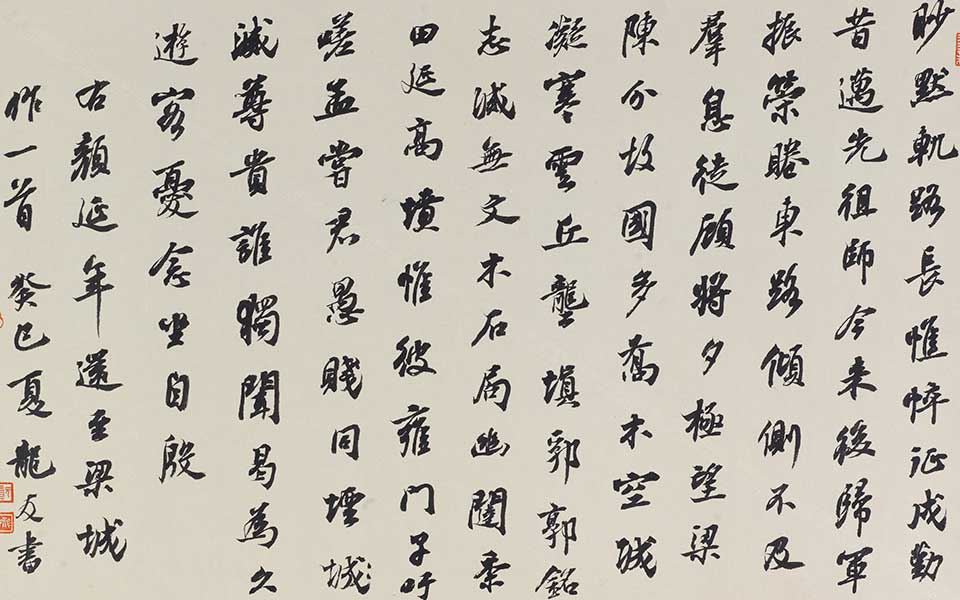 眇默軌路長惟悴征戍勤
昔邁先徂師今来後歸軍
振策睠東路傾側不及
羣息徒顧將夕極望梁
陳分故國多喬木空城
凝寒雲丘壟填郛郭銘
志滅無文木石扃幽闥黍
田延高墳惟彼雍門子吁
嗟孟嘗君愚賤同堙城
滅尊貴誰獨聞曷為久
遊客憂念坐自殷
右顏延年還至梁城
作一首 癸巳夏龍友書